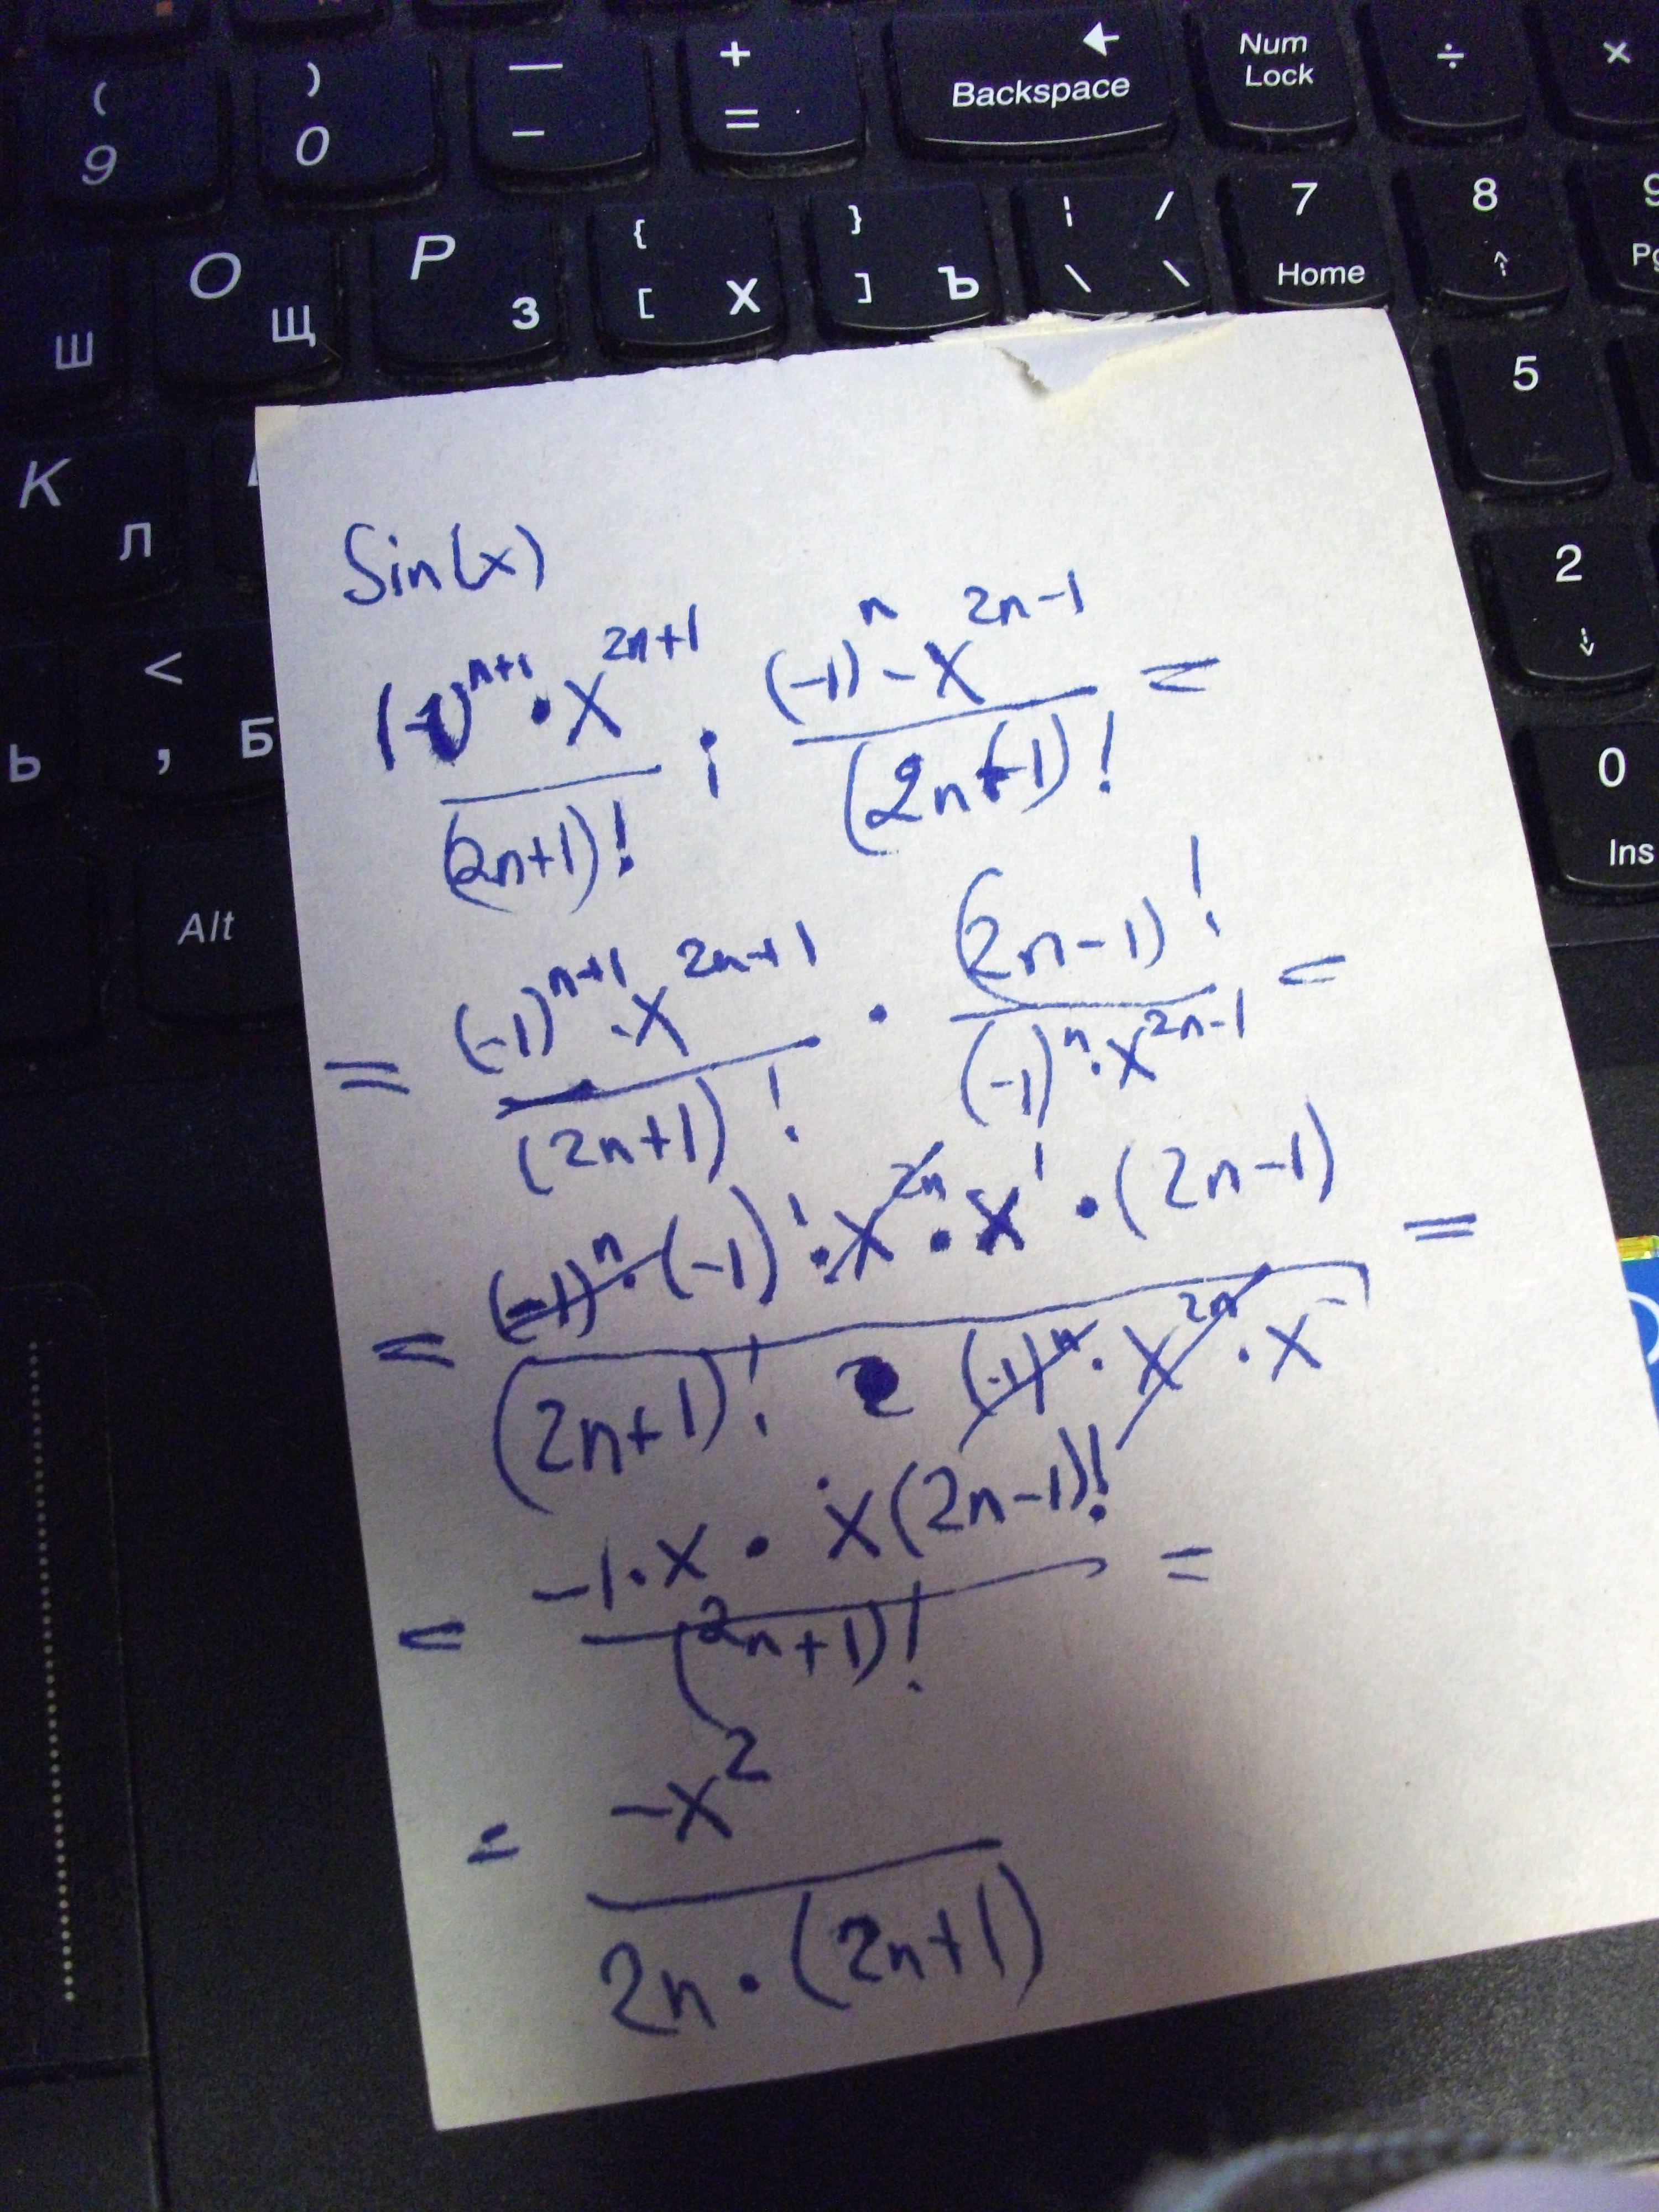 ( 9
) 0
— –
+ =
← Backspace
Num Lock
÷
×
Ш
O Щ
P З
{ [ Х
} ] Ъ
¦ / \ \
7 Home
8 ↑
9
К Л
5
2 ↓
Ь
< , Б
0 Ins
Alt
Sin(x)
(-1)^n+1 · x^2n+1 / (2n+1)! : (-1)^n - x^2n-1 / (2n-1)! =
= (-1)^n+1 · x^2n+1 / (2n+1)! · (2n-1)! / (-1)^n · x^2n-1 =
= (-1)^n · (-1)^1 · x^2n · x^1 · (2n-1)! / (2n+1)! (-1)^n · x^2n · x^- =
= -1 · x · x(2n-1)! / (2n+1)! =
= -x^2 / 2n · (2n+1)